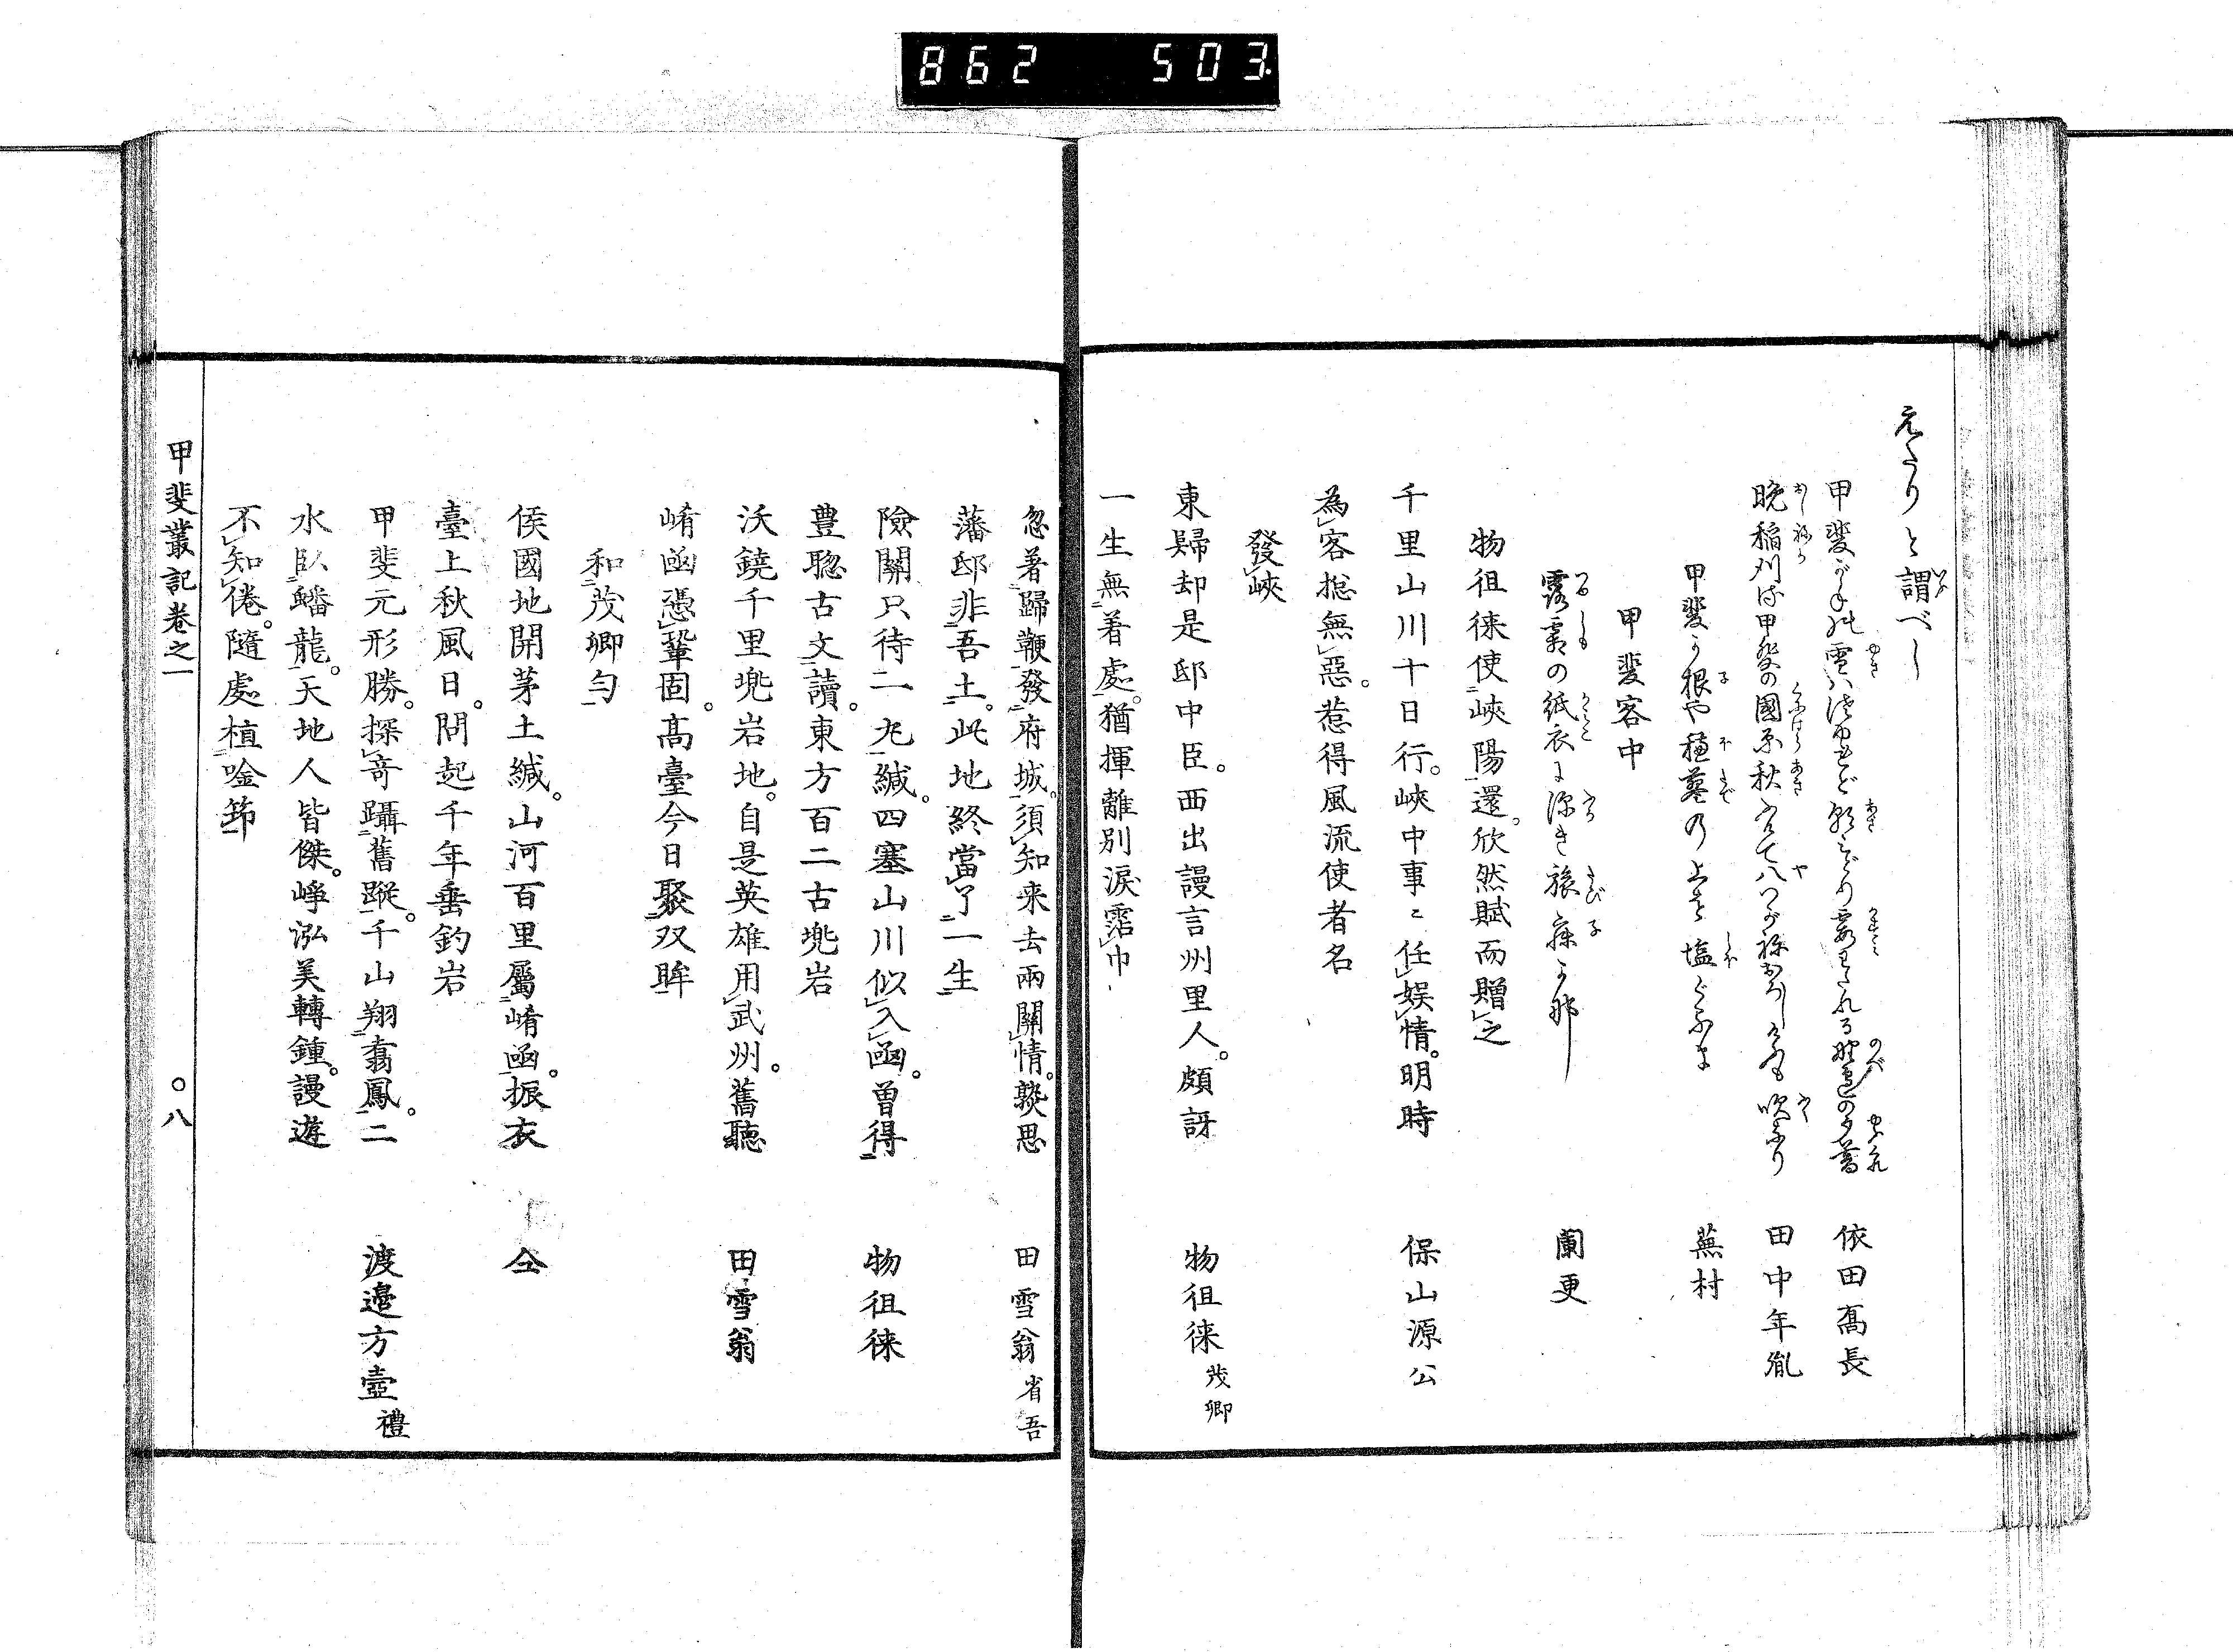 862 503
えたりと謂べし
甲斐がね雪はけど
依田髙長
晩稲刈 甲斐の國原秋 て八つがね し 吹 り
田中年胤
甲斐か根や穂蓼の上を塩くるま
蕪村
甲斐客中
露霜の紙衣に深き旅寐か那
蘭更
物徂徠使峽陽還。欣然賦而贈之
千里山川十日行。峽中事〻任娯情。明時
保山源公
為客揔無惡。惹得風流使者名
發峽
東歸却是邸中臣。西出謾言州里人。頗訝
物徂徠 茂卿
一生無着處。猶揮離別淚霑巾
忽著歸鞭發府城。須知来去兩關情。熟思
田雪翁 省吾
藩邸非吾土。此地終當了一生
險關只待二丸緘。四塞山川似入函。曽得
物徂徠
豊聰古文讀。東方百二古兠岩
沃鐃千里兠岩地。自是英雄用武州。舊聽
田雪翁
崤函憑鞏固。髙臺今日聚双眸
和茂卿匀
侯國地開茅土緘。山河百里屬崤函。振衣
仝
臺上秋風日。問起千年垂釣岩
甲斐元形勝。探奇躡舊蹤。千山翔翥鳳。二
渡邉方壷 禮
水臥蟠龍。天地人皆傑。崢泓美轉鍾。謾遊
不知倦。隨處植唫筇
甲斐叢記卷之一 ○八